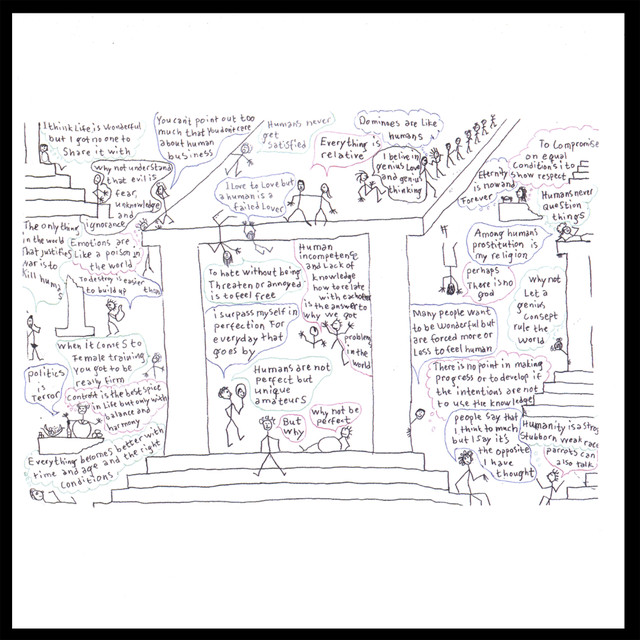 I think Life is Wonderful
but I got no one to
Share it with
You can't point out too
much that You don't care
about human
business
Humans never
get
Satisfied
Dominoes are Like
humans
Everything is
relative
I belive in
genius Love
and genius
thinking
To Compromise
on equal
Conditions is to
show respect
Eternity
is now and
Forever
Humans never
question
things
why not understand
that evil is
fear,
unknowledge
and
ignorance
I Love to Love but
a human is a
failed Lover
The only thing
in the world
That justifies
war is to
Kill humans
Emotions are
Like a poison in
the world
To destroy is easier
to build up
than
To hate without being
Threaten or annoyed
is to feel free
Human
incompetense
and Lack of
knowledge
how to relate
with eachother
is the answer to
why we got
problems
in the
world
Among humans
prostitution is
my religion
perhaps
There is no
god
why not
Let a
genius
consept
rule the
world
i surpass myself in
perfection For
everyday that
goes by
Many people want
to be wonderful but
are forced more or
Less to feel human
when it comes to
Female training
you got to be
really firm
politics
is
Terror
Contrast is the best spice
in Life but only with
balance and
harmony
Humans are not
perfect but
unique
amateurs
There is no point in making
progress or to develop if
the intentions are not
to use the knowledge
But
why
why not be
perfect
people say that
I think to much
but I say it's
the opposite
I have
thought
Humanity is a Strong
Stubborn weak race
parrots can
also talk
Everything becomes better with
time and age and the right
conditions